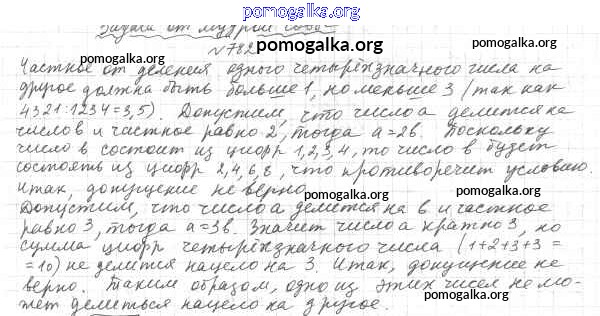 pomogalka.org
Задачи от мудрой совы
№782
pomogalka.org
Частное от деления одного четырёхзначного числа на
другое должна быть больше 1, но меньше 3 (так как
4321:1234=3,5). Допустим, что число а делится на
число в и частное равно 2, тогда а=2в. Поскольку
число в состоит из цифр 1,2,3,4, то число в будет
состоять из цифр 2,4,6,8, что противоречит условию.
Итак, допущение не верно.
Допустим, что число а делится на в и частное
равно 3, тогда а=3в. Значит число а кратно 3, но
сумма цифр четырёхзначного числа (1+2+3+3=
=10) не делится нацело на 3. Итак, допущение не
верно. Таким образом, одно из этих чисел не мо-
жет делиться нацело на другое.
pomogalka.org
pomogalka.org
pomogalka.org
pomogalka.org
pomogalka.org
pomogalka.org